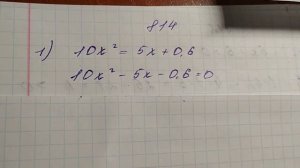 814
1) 10x² = 5x + 0,6
10x² - 5x - 0,6 = 0